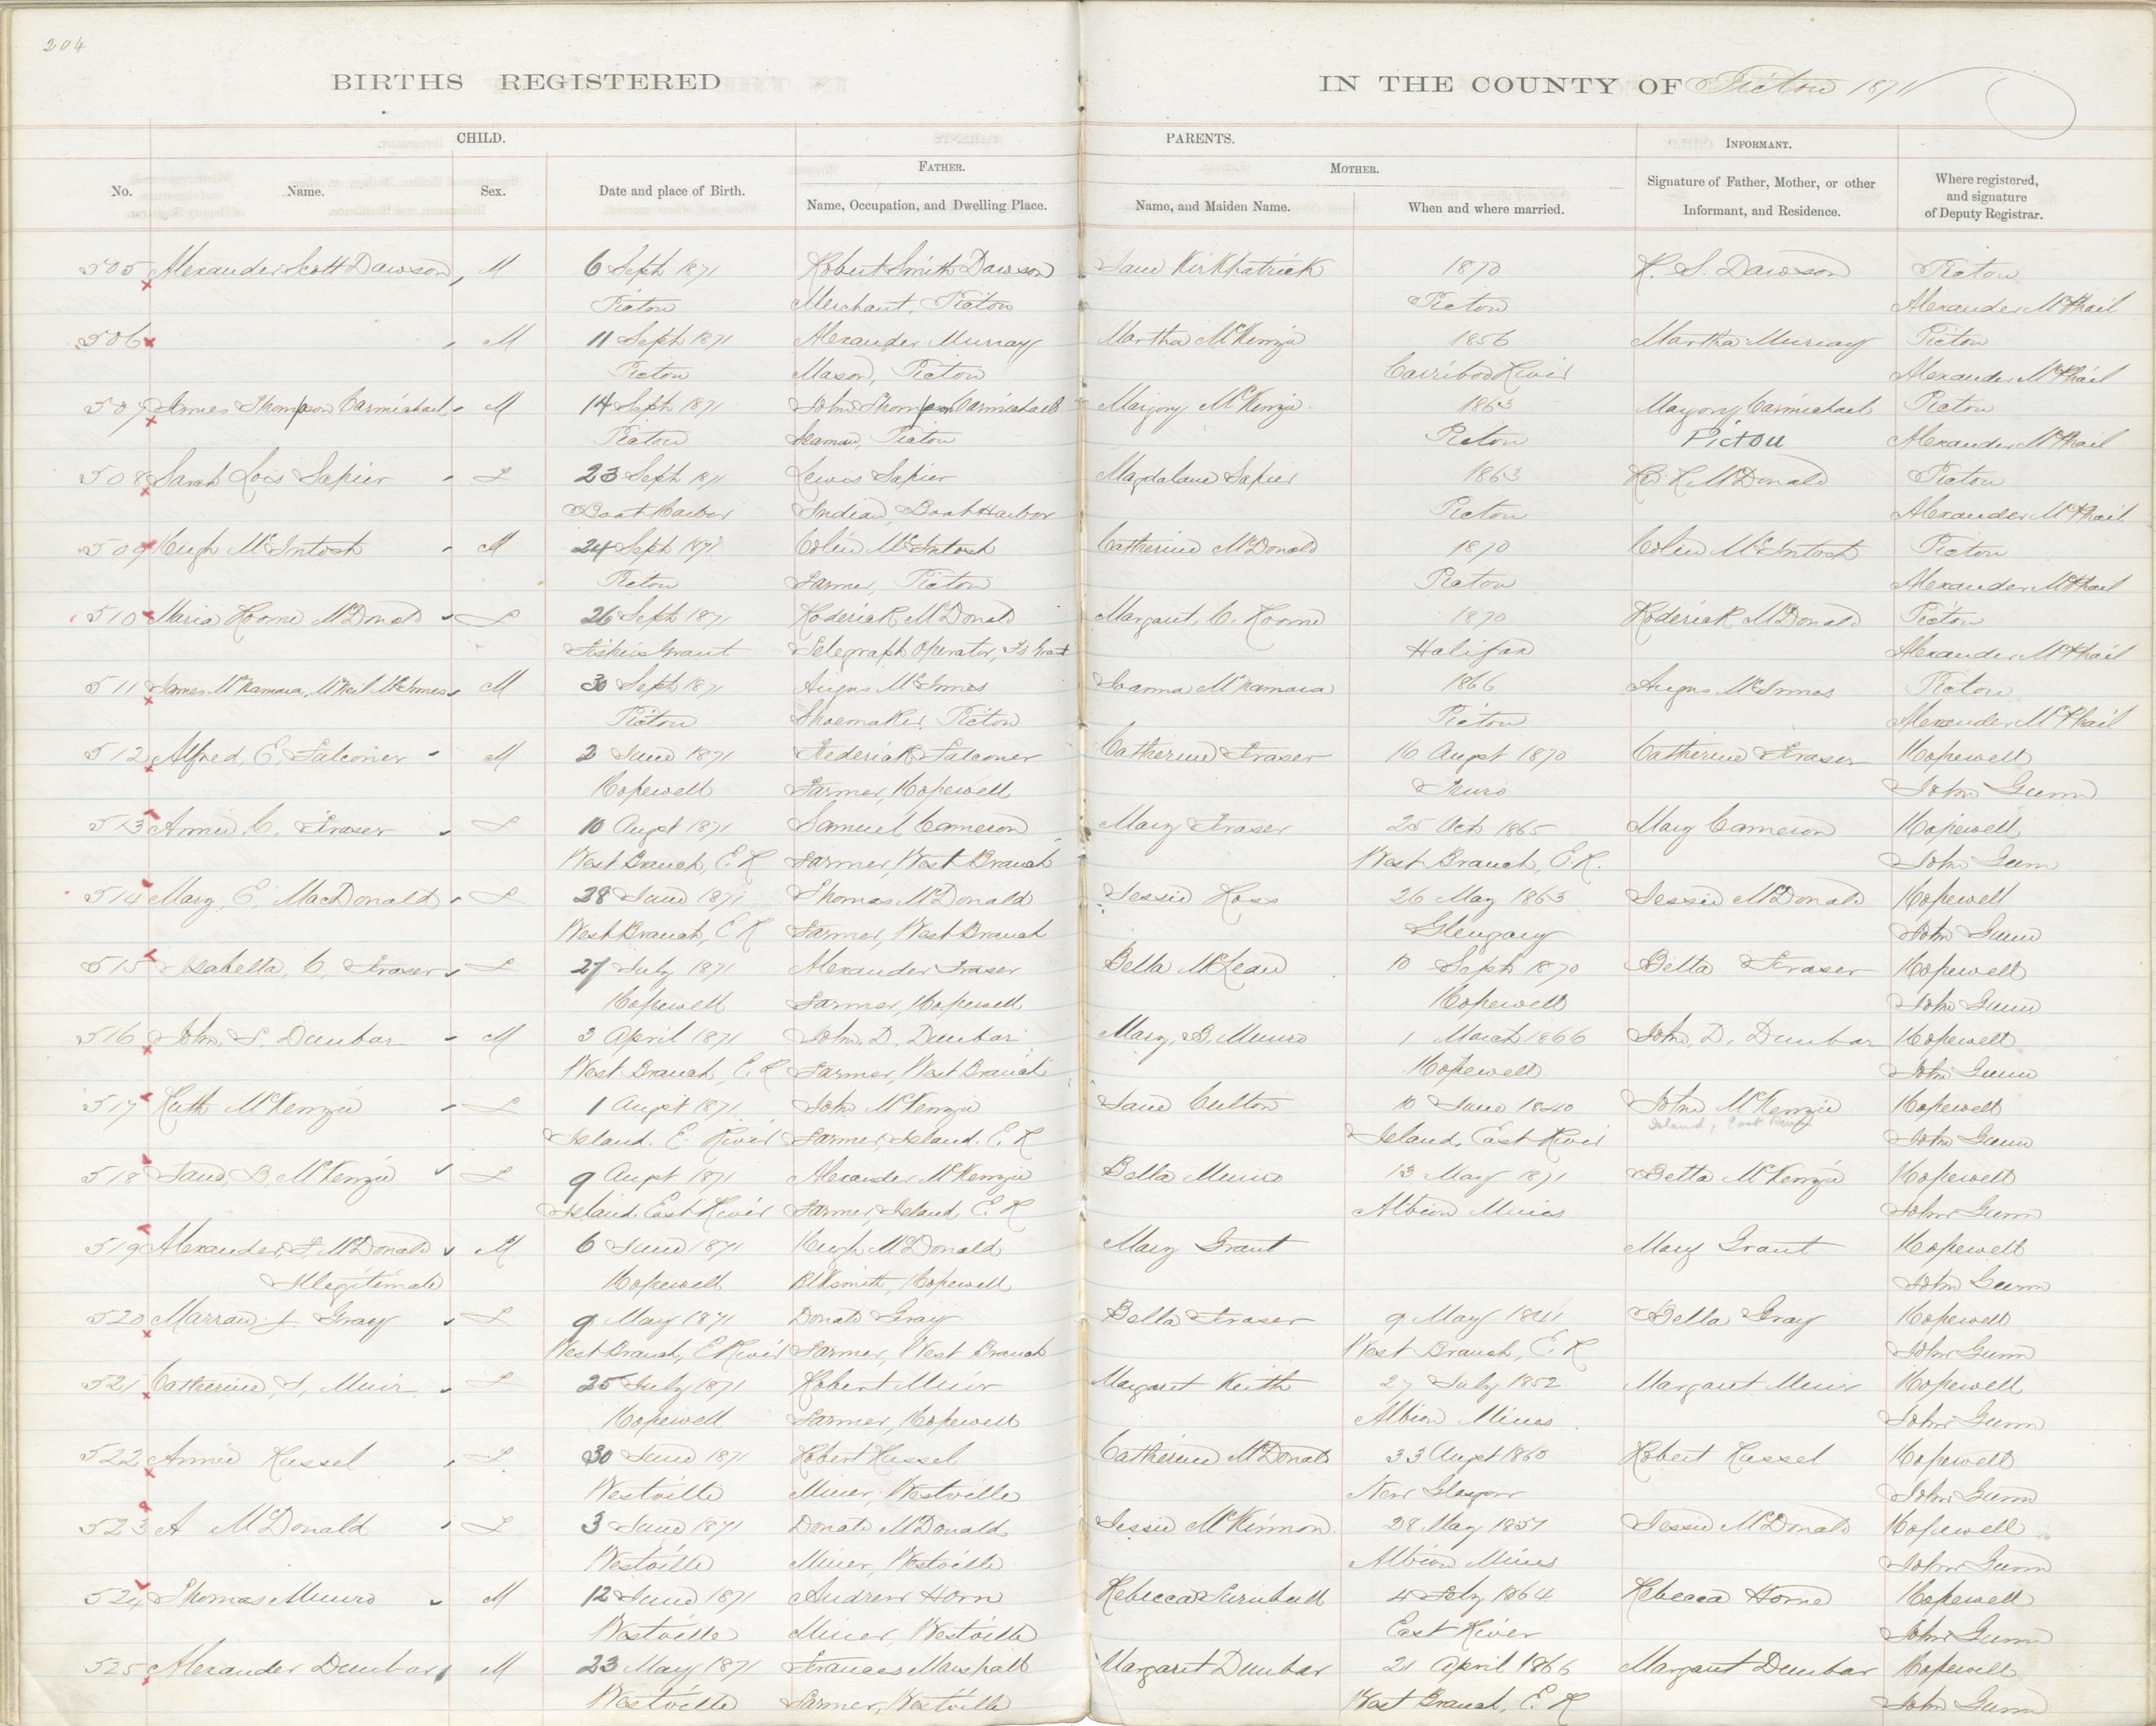 204
BIRTHS REGISTERED IN THE COUNTY OF Pictou 1871
CHILD. PARENTS. INFORMANT.
No. Name. Sex. Date and place of Birth. FATHER. Name, Occupation, and Dwelling Place. MOTHER. Name, and Maiden Name. When and where married. Signature of Father, Mother, or other Informant, and Residence. Where registered, and signature of Deputy Registrar.
505 Alexander Scott Dawson, M 6 Sept 1871 Robert Smith Dawson Jane Kirkpatrick 1870 R. S. Dawson Pictou
Pictou Merchant, Pictou Pictou Alexander McPhail
506 M 11 Sept 1871 Alexander Murray Martha McKenzie 1856 Martha Murray Pictou
Pictou Mason, Pictou Carribou River Alexander McPhail
507 James Thompson Carmichael M 14 Sept 1871 John Thompson Carmichael Marjory McKenzie 1863 Marjory Carmichael Pictou
Pictou Seaman, Pictou Pictou Pictou Alexander McPhail
508 Sarah Lois Sapier F 23 Sept 1871 Lewis Sapier Magdalane Sapier 1863 McDonald Pictou
Boat Harbor Indian, Boat Harbor Pictou Alexander McPhail
509 Hugh McIntosh M 24 Sept 1871 Colin McIntosh Catherine McDonald 1870 Colin McIntosh Pictou
Pictou Farmer, Pictou Pictou Alexander McPhail
510 Maria Roome McDonald F 26 Sept 1871 Roderick McDonald Margaret, C. Roome 1870 Roderick McDonald Pictou
Fishers Grant Telegraph Operator, Fs Grant Halifax Alexander McPhail
511 James McNamara, McNeil McInnes M 30 Sept 1871 Angus McInnes Joanna McNamara 1866 Angus McInnes Pictou
Pictou Shoemaker, Pictou Pictou Alexander McPhail
512 Alfred, E. Falconer M 2 June 1871 Frederick Falconer Catherine Fraser 16 Augst 1870 Catherine Fraser Hopewell
Hopewell Farmer, Hopewell Truro John Gunn
513 Annie, C. Fraser F 10 Augst 1871 Samuel Cameron Mary Fraser 25 Oct 1865 Mary Cameron Hopewell
West Branch, E. R Farmer, West Branch West Branch, E. R. John Gunn
514 Mary E. MacDonald F 28 June 1871 Thomas McDonald Jessie Ross 26 May 1863 Jessie McDonald Hopewell
West Branch, E R Farmer, West Branch Glengary John Gunn
515 Isabella, C, Fraser F 27 July 1871 Alexander Fraser Bella McLean 10 Sept 1870 Bella Fraser Hopewell
Hopewell Farmer, Hopewell Hopewell John Gunn
516 John, S. Dunbar M 3 April 1871 John, D. Dunbar Mary, B. Munro 1 March 1866 John, D. Dunbar Hopewell
West Branch, E. R Farmer, West Branch Hopewell John Gunn
517 Ruth McKenzie F 1 Augst 1871 John McKenzie Jane Culton 10 June 1840 John McKenzie Hopewell
Island. E. River Farmer, Island. E. R Island, East River Island, East River John Gunn
518 Jane, B, McKenzie F 9 Augst 1871 Alexander McKenzie Bella Munro 13 May 1871 Bella McKenzie Hopewell
Island. East River Farmer, Island, E. R Albion Mines John Gunn
519 Alexander, F. McDonald M 6 June 1871 Hugh McDonald Mary Grant Mary Grant Hopewell
Illegitimate Hopewell Blksmith, Hopewell John Gunn
520 J. Gray F 9 May 1871 Donald Gray Bella Fraser 9 May 1841 Bella Gray Hopewell
West Branch, E River Farmer, West Branch West Branch, E. R John Gunn
521 Catherine, Muir F 25 July 1871 Robert Muir Margaret Keith 27 July 1852 Margaret Muir Hopewell
Hopewell Farmer, Hopewell Albion Mines John Gunn
522 Annie Russel F 30 June 1871 Robert Russel Catherine McDonald 33 Augst 1860 Robert Russel Hopewell
Westville Miner, Westville New Glasgow John Gunn
523 A McDonald F 3 June 1871 Donald McDonald Jessie McKinnon 28 May 1857 Jessie McDonald Hopewell
Westville Miner, Westville Albion Mines John Gunn
524 Thomas Munro M 12 June 1871 Andrew Horn Rebecca Turnbull 4 Feby 1864 Rebecca Horne Hopewell
Westville Miner, Westville East River John Gunn
525 Alexander Dunbar M 23 May 1871 Frances Marshall Margaret Dunbar 21 April 1866 Margaret Dunbar Hopewell
Westville Farmer, Westville West Branch, E. R John Gunn